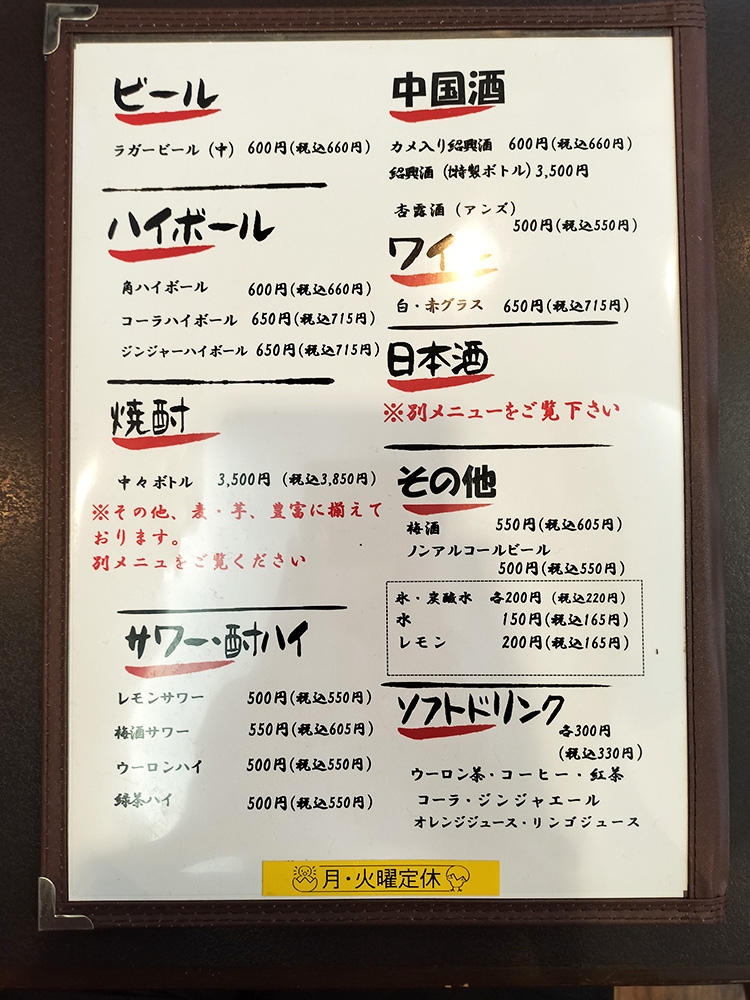 ビール
ラガービール (中) 600円(税込660円)
ハイボール
角ハイボール 600円(税込660円)
コーラハイボール 650円(税込715円)
ジンジャーハイボール 650円(税込715円)
焼酎
中々ボトル 3,500円 (税込3,850円)
※その他、麦・芋、豊富に揃えて
おります。
別メニュをご覧ください
サワー・酎ハイ
レモンサワー 500円(税込550円)
梅酒サワー 550円(税込605円)
ウーロンハイ 500円(税込550円)
緑茶ハイ 500円(税込550円)
中国酒
カメ入り紹興酒 600円(税込660円)
紹興酒 (特製ボトル) 3,500円
杏露酒 (アンズ)
500円(税込550円)
ワイン
白・赤グラス 650円(税込715円)
日本酒
※別メニューをご覧下さい
その他
梅酒 550円(税込605円)
ノンアルコールビール
500円(税込550円)
氷・炭酸水 各200円 (税込220円)
水 150円(税込165円)
レモン 200円(税込165円)
ソフトドリンク
各300円
(税込330円)
ウーロン茶・コーヒー・紅茶
コーラ・ジンジャエール
オレンジジュース・リンゴジュース
月・火曜定休